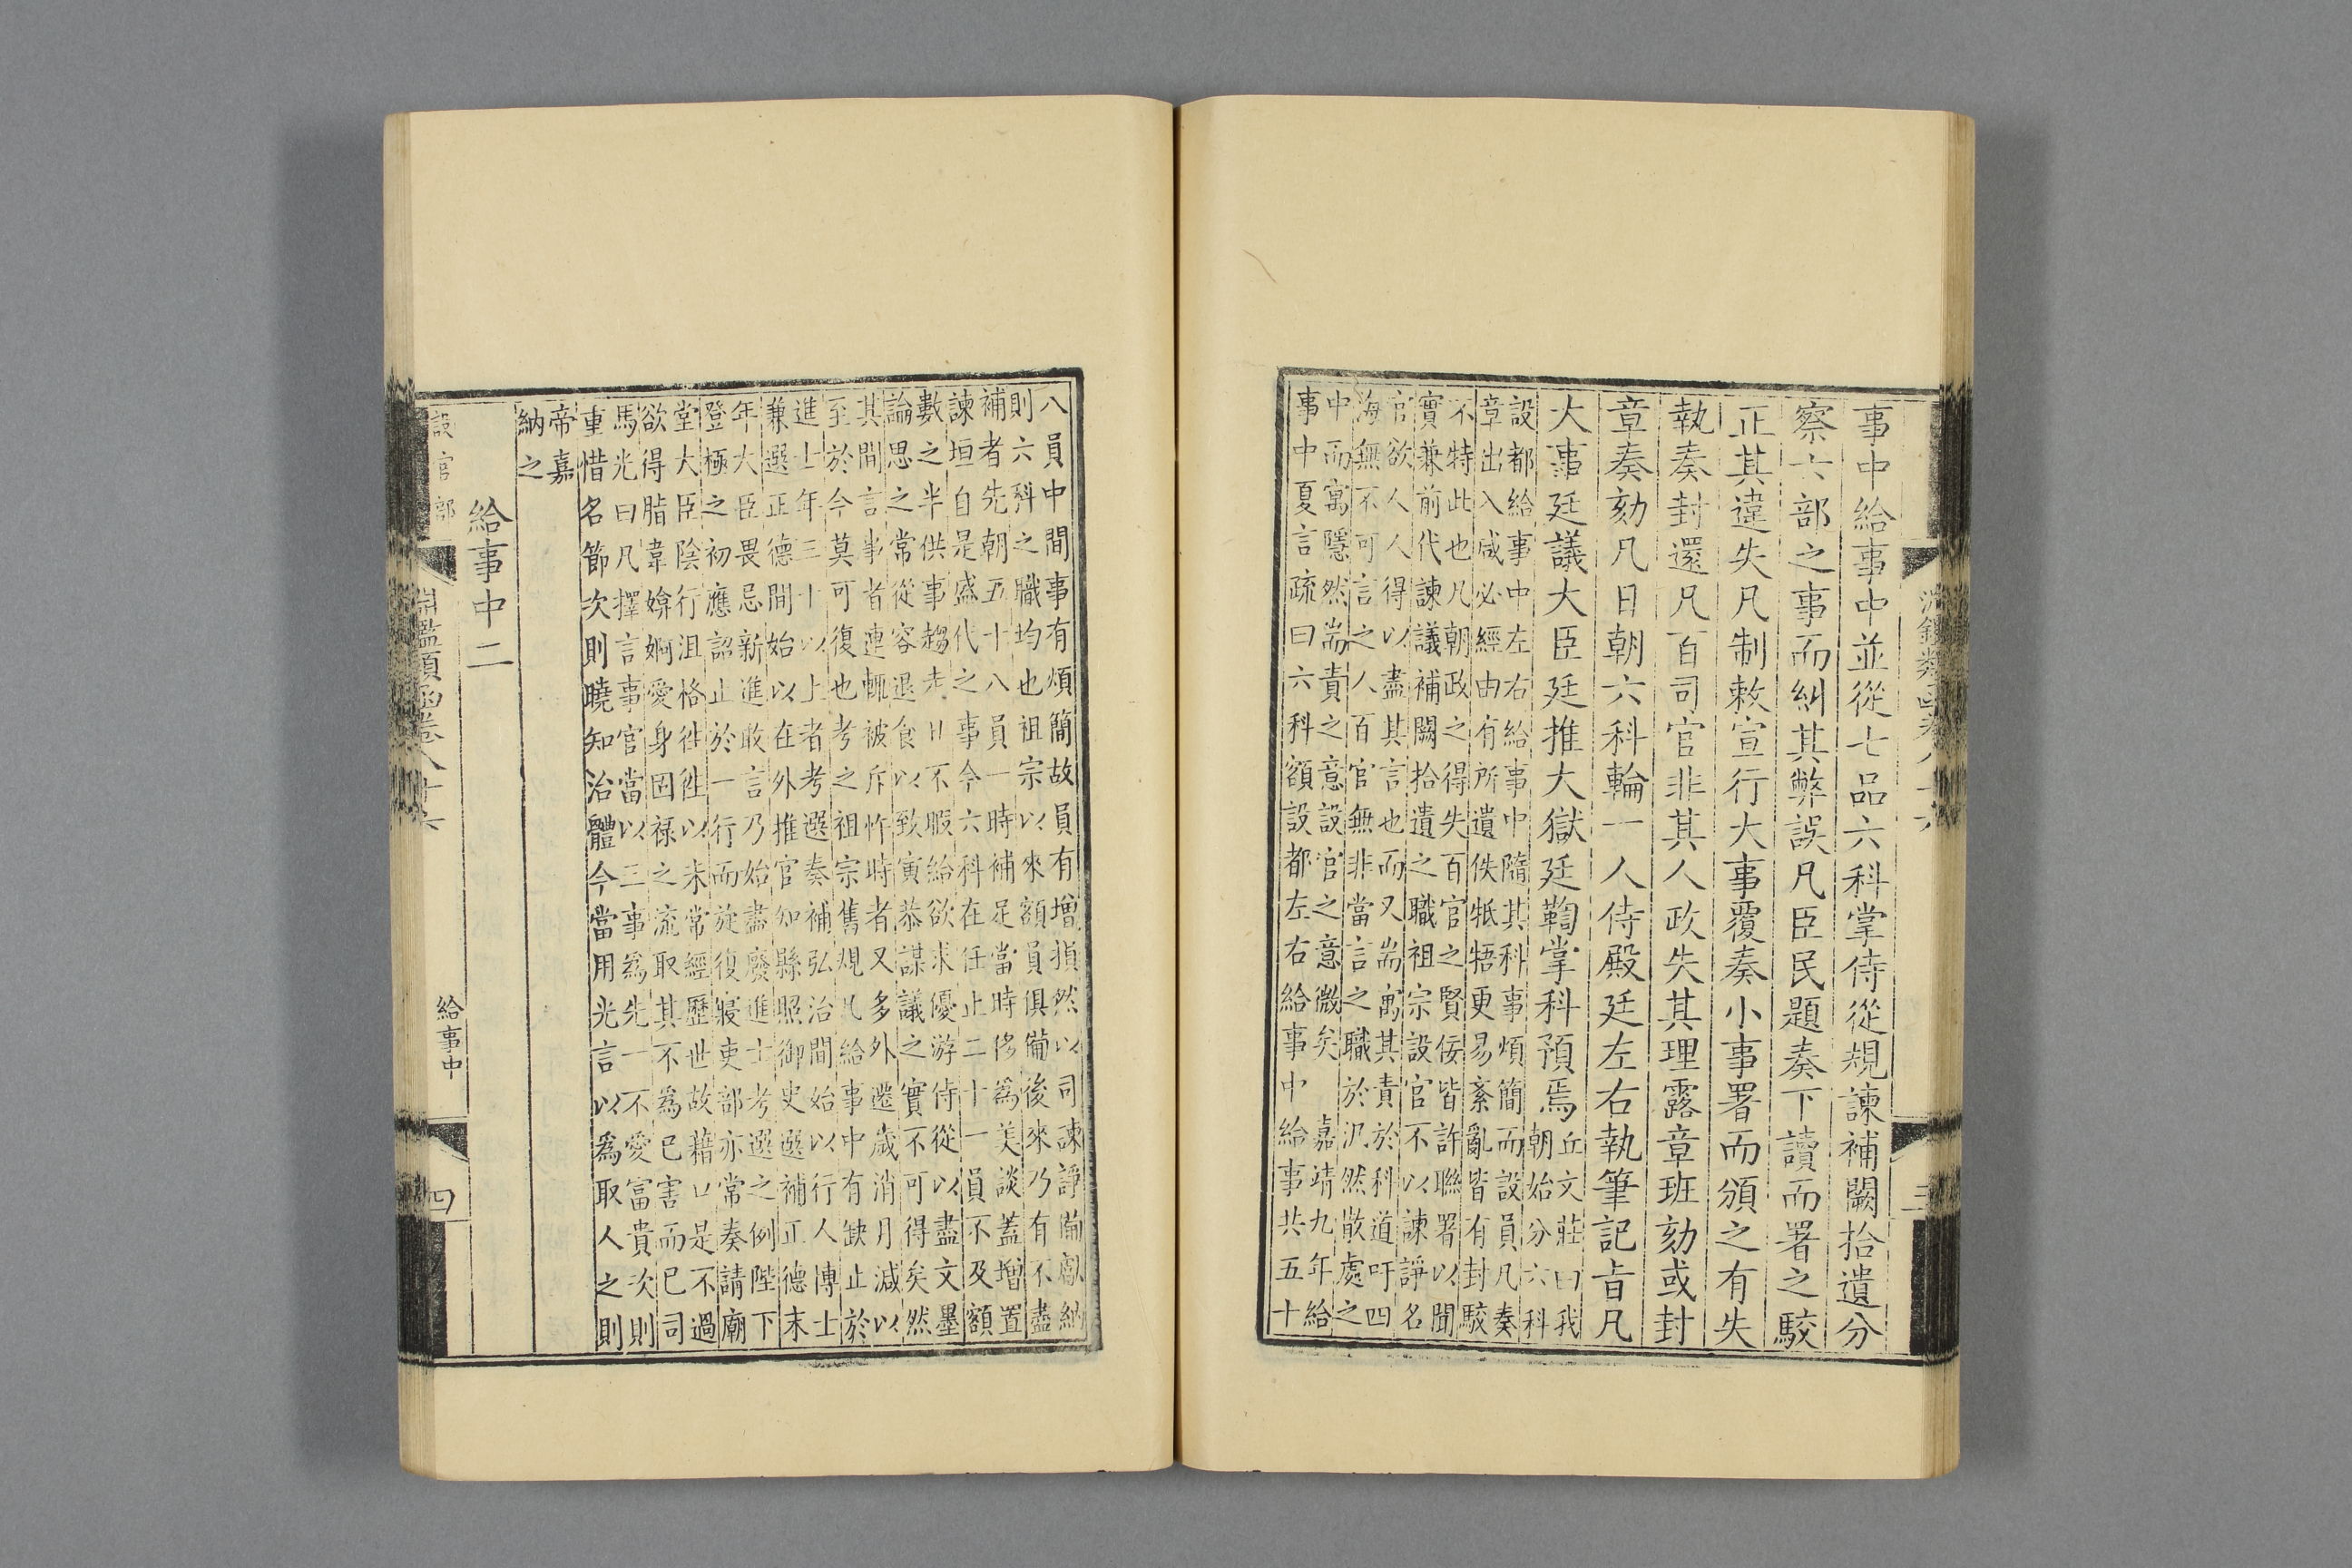 事中給事中並從七品六科掌侍從規諫補闕拾遺分
察六部之事而糾其弊誤凡臣民題奏下讀而署之駮
正其違失凡制敕宣行大事覆奏小事署而頒之有失
執奏封還凡百司官非其人政失其理露章班劾或封
章奏劾凡日朝六科輪一人侍殿廷左右執筆記旨凡
大事廷議大臣廷推大獄廷鞫掌科預焉
丘文莊曰我
朝始分六科
設都給事中左右給事中隨其科事煩簡而設員凡奏
章出入咸必經由有所遺佚牴牾更易紊亂皆有封駮
不特此也凡朝政之得失百官之賢佞皆許聯署以聞
實兼前代諫議補闕拾遺之職祖宗設官不以諫諍名
官欲人人得以盡其言也而又耑寓其責於科道吁四
海無不可言之人百官無非當言之職於汎然散處之
中而寓隱然耑責之意設官之意微矣 嘉靖九年給
事中夏言疏曰六科額設都左右給事中給事共五十
三
八員中間事有煩簡故員有增損然以司諫諍備獻納
則六科之職均也祖宗以來額員俱備後來乃有不盡
補者先朝五十八員一時補足當時侈為美談蓋增置
諫垣自是盛代之事今六科在任止二十一員不及額
數之半供事趨走日不暇給欲求優游侍從以盡文墨
論思之常從容退食以致寅恭謀議之實不可得矣然
其間言事者連輒被斥忤時者又多外遷歲消月減以
至於今莫可復也考之祖宗舊規凡給事中有缺止於
進士年三十以上者考選奏補弘治間始以行人博士
兼選正德間始以在外推官知縣照御史選補正德末
年大臣畏忌新進敢言乃始盡廢進士考選之例陛下
登極之初應詔止於一行而旋復寢吏部亦常奏請廟
堂大臣陰行沮格徃徃以未常經歷世故藉口是不過
欲得脂韋媕婀愛身固祿之流取其不為已害而已司
馬光曰凡擇言事官當以三事為先一不愛富貴次則
重惜名節次則曉知治體今當用光言以為取人之則
帝嘉
納之
給事中二
設官部
淵鑑類函卷八十六
給事中
四